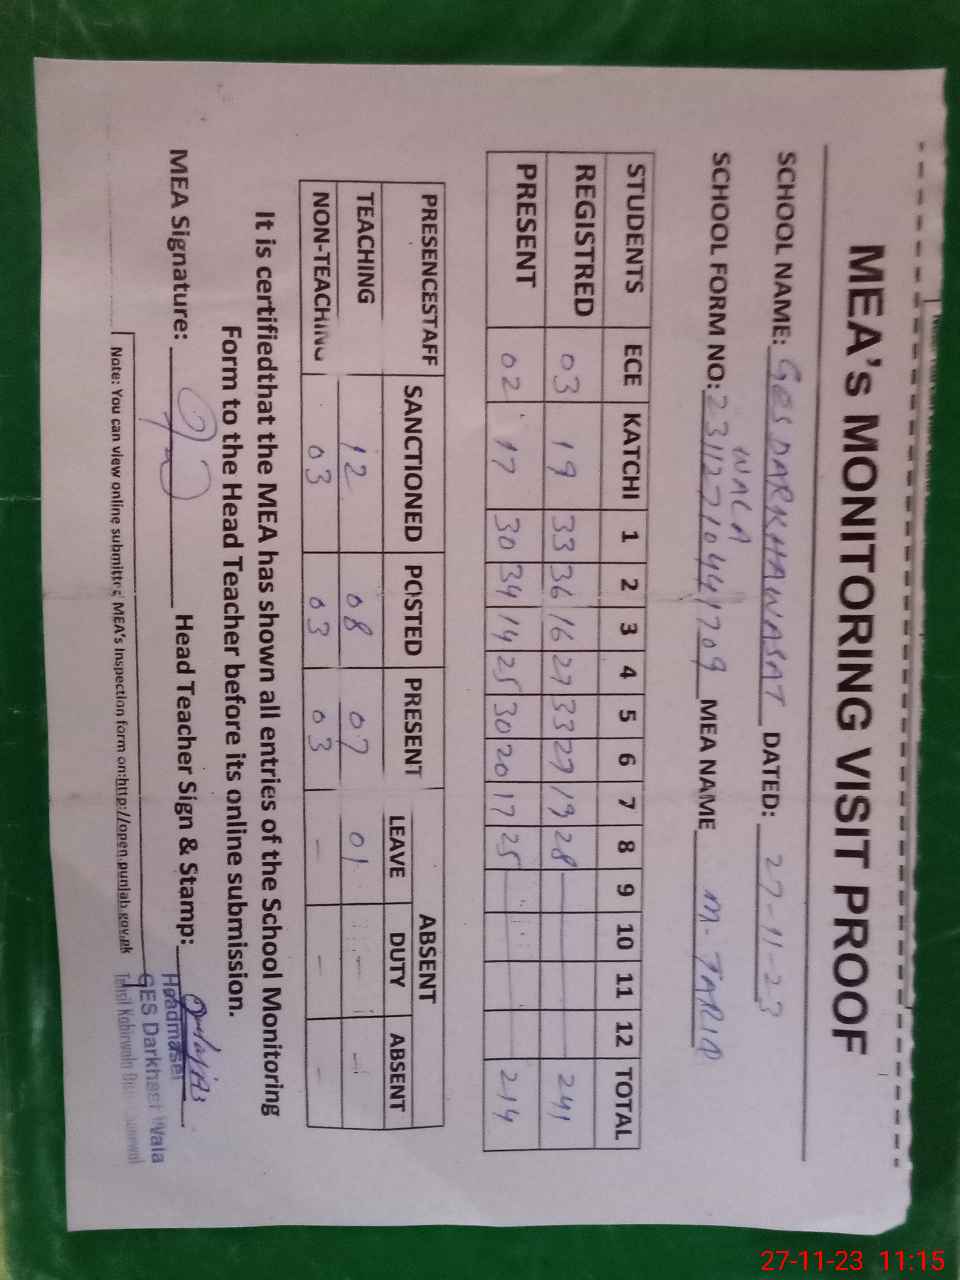 MEA's MONITORING VISIT PROOF
SCHOOL NAME: GES DARKHAWASAT DATED: 27-11-23
WALA
SCHOOL FORM NO: 23112710441709 MEA NAME M. TARIQ
STUDENTS ECE KATCHI 1 2 3 4 5 6 7 8 9 10 11 12 TOTAL
REGISTRED 03 19 33 36 16 27 33 27 19 28 241
PRESENT 02 17 30 34 14 25 30 20 17 25 214
PRESENCESTAFF SANCTIONED POSTED PRESENT ABSENT
LEAVE DUTY ABSENT
TEACHING 12 08 07 01 - -
NON-TEACHING 03 03 03 - - -
It is certifiedthat the MEA has shown all entries of the School Monitoring
Form to the Head Teacher before its online submission.
MEA Signature: Head Teacher Sign & Stamp:
Headmaser
GES Darkhast Wala
Tehsil Kabirwala
Note: You can view online submitted MEA's Inspection form on:http://open.punjab.gov.pk
27-11-23 11:15